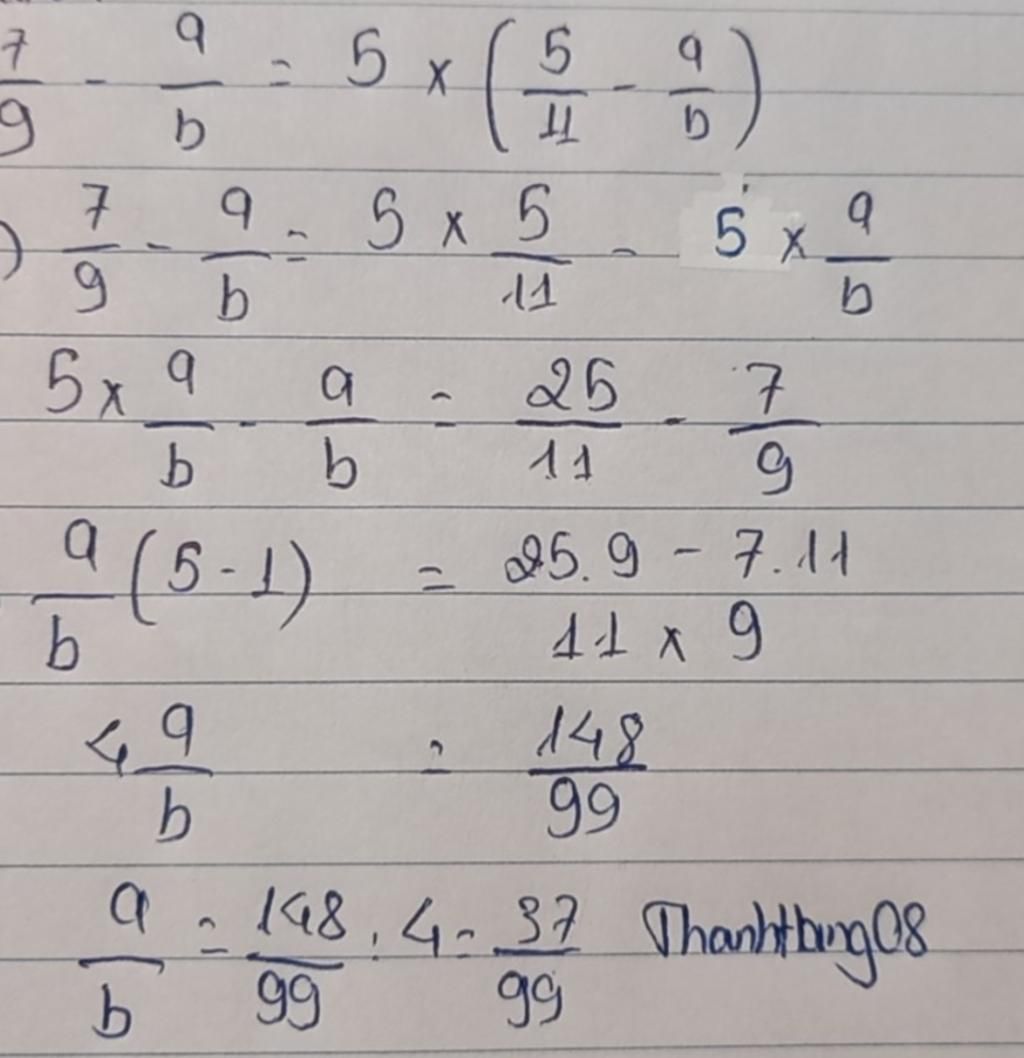 7/9 - a/b = 5 × (5/11 - a/b)
) 7/9 - a/b = 5 × 5/11 - 5 × a/b
5 × a/b - a/b = 25/11 - 7/9
a/b (5 - 1) = 25.9 - 7.11 / 11 × 9
4 a/b = 148/99
a/b = 148/99 : 4 = 37/99 Thanhtung08